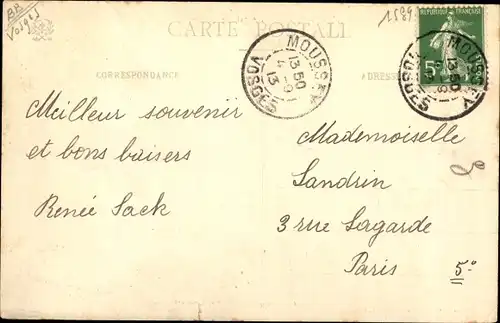 BP
Vosges
1589
CARTE POSTALE
CORRESPONDANCE
ADRESSE
MOUSSEY
13 50
4 -9
13
VOSGES
MOUSSEY
13 50
VOSGES
5
Meilleur souvenir
et bons baisers
Renée Sack
Mademoiselle
Sandrin
3 rue Lagarde
Paris
5e